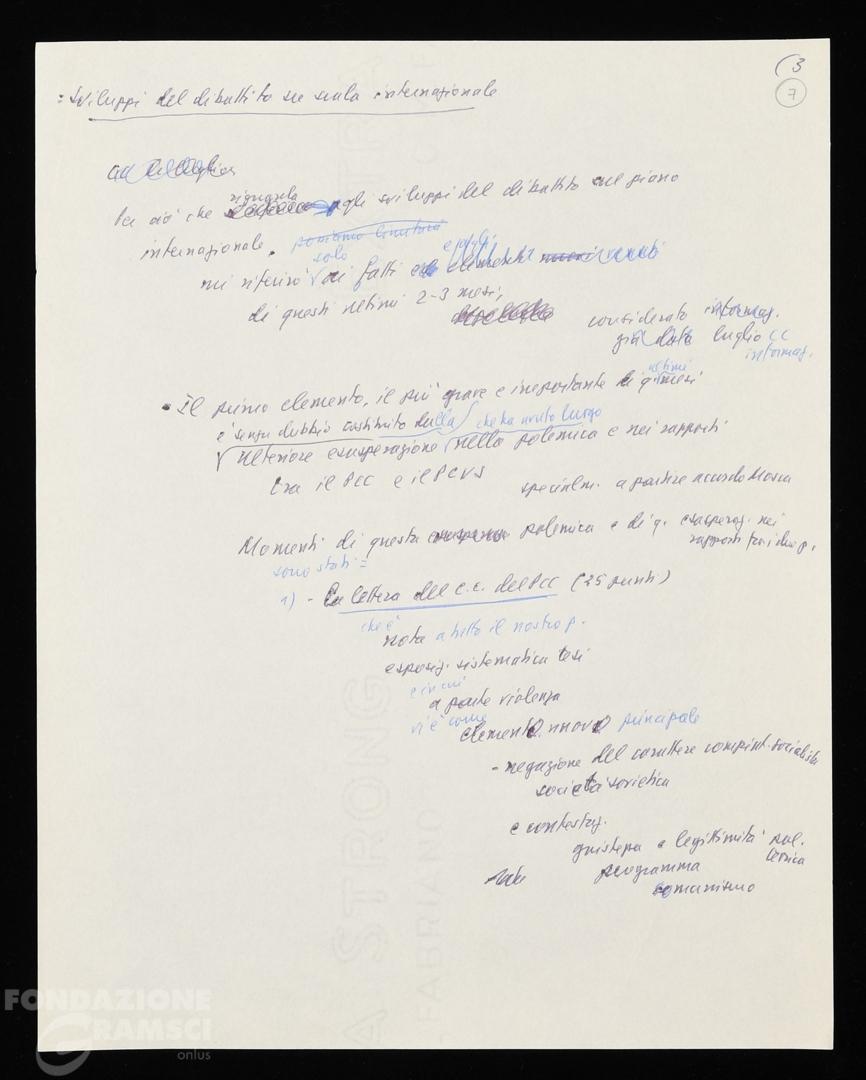 (3
7
: Sviluppi del dibattito su scala internazionale
Per ciò che riguarda gli sviluppi del dibattito sul piano
internazionale. poniamo limitarci
mi riferirò solo ai fatti
di questi ultimi 2-3 mesi,
considerato informaz.
già data luglio CC
informaz.
• Il primo elemento, il più grave e importante di q. ultimi mesi
è senza dubbio costituito dalla che ha avuto luogo
ulteriore esasperazione nella polemica e nei rapporti
tra il PCC e il PCUS
specialm. a partire accordo Mosca
Momenti di questa polemica e di q. esasperaz. nei
rapporti fra i due p.
sono stati =
1) - La lettera del C.C. del PCC (25 punti)
che è
nota a tutto il nostro p.
esposiz. sistematica tesi
e in cui
a parte violenza
vi è come
elemento nuovo principale
- negazione del carattere compiut. socialista
società sovietica
e contestaz.
giustezza e legittimità pol.
programma
comunismo
FONDAZIONE
GRAMSCI
onlus
A STRONG
FABRIANO